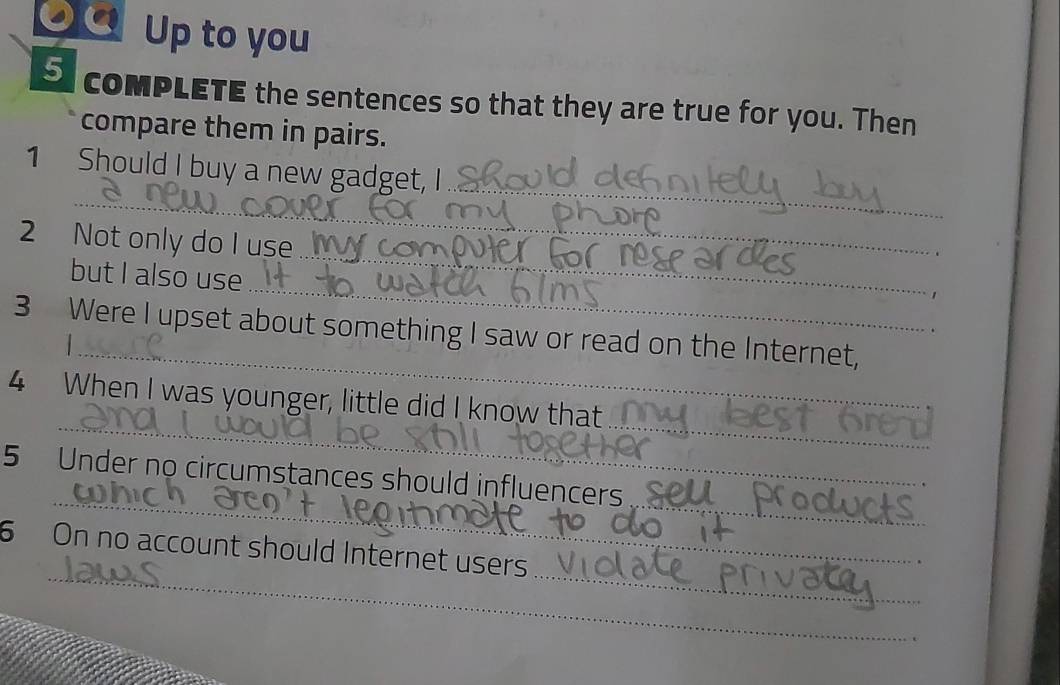 Up to you
5 COMPLETE the sentences so that they are true for you. Then
compare them in pairs.
1 Should I buy a new gadget, I should definitely buy
a new cover for my phore.
2 Not only do I use my computer for researdes,
but I also use it to watch films.
3 Were I upset about something I saw or read on the Internet,
I were.
4 When I was younger, little did I know that my best frend
and I would be still together.
5 Under no circumstances should influencers sell products
which aren't legitimate to do it.
6 On no account should Internet users violate privatey
laws.